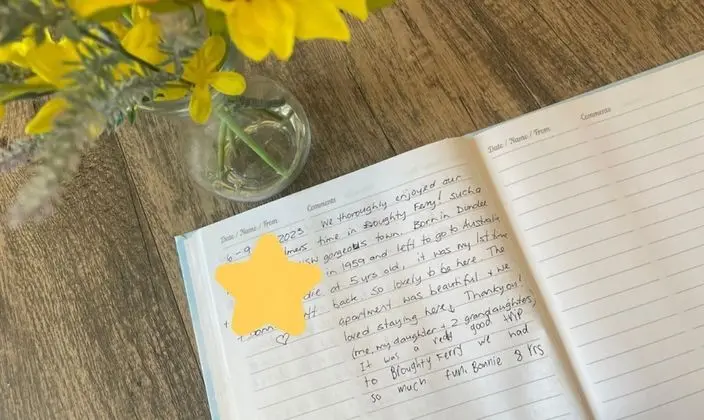 Date / Name / From Comments
Date / Name / From Comments
6 - 9 2023 We thoroughly enjoyed our
time in Broughty Ferry! such a
NSW gorgeous town. Born in Dundee
in 1959 and left to go to Australia
at 5 yrs old, it was my 1st time
back. So lovely to be here. The
apartment was beautiful + we
loved staying here. Thankyou!
(me, my daughter + 2 grandaughters)
It was a good trip
to Broughty Ferry we had
so much fun. Bonnie 8 yrs